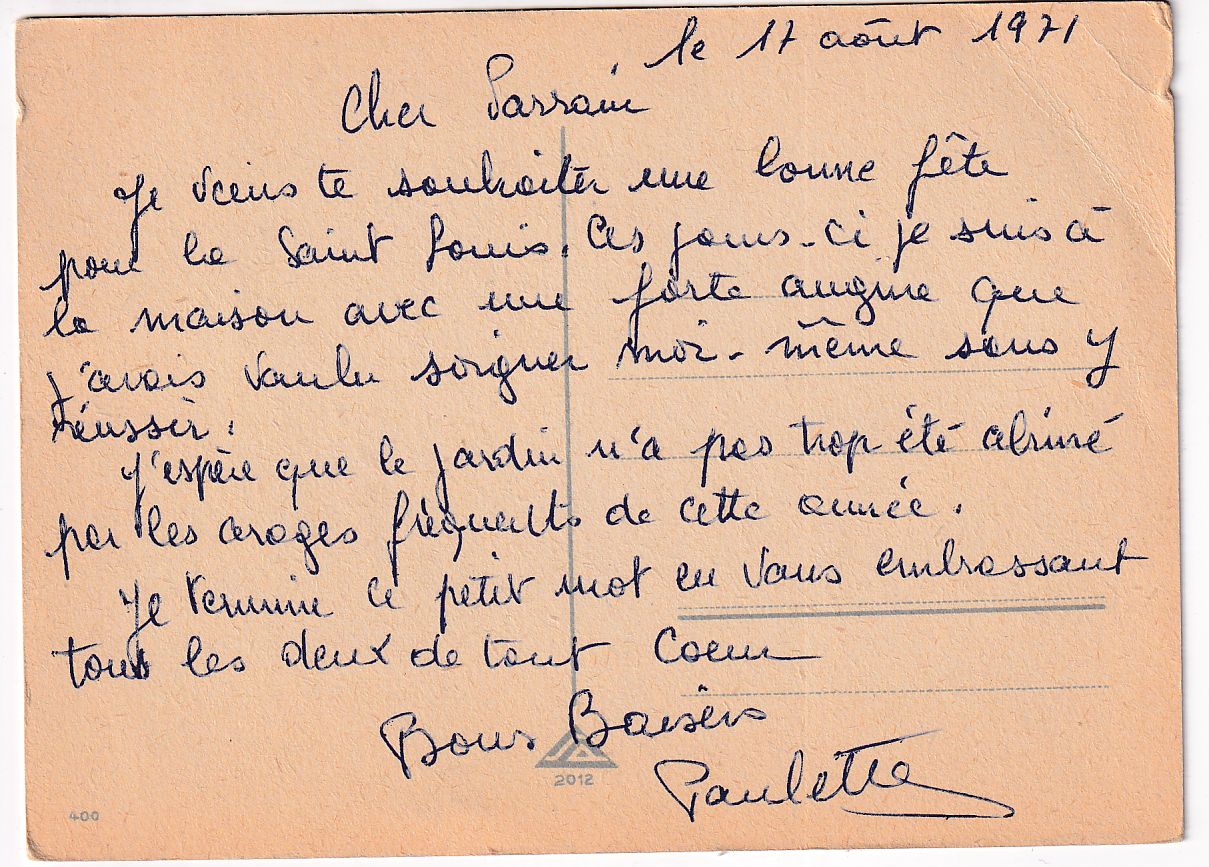 le 17 août 1971
Cher Parrain
Je viens te souhaiter une bonne fête
pour la Saint Louis. Ces jours-ci je suis à
la maison avec une forte angine que
j'avais voulu soigner moi-même sans y
réussir.
J'espère que le jardin n'a pas trop été abimé
par les orages fréquents de cette année.
Je termine ce petit mot en vous embrassant
tous les deux de tout coeur
Bons Baisers
Paulette
2012
400